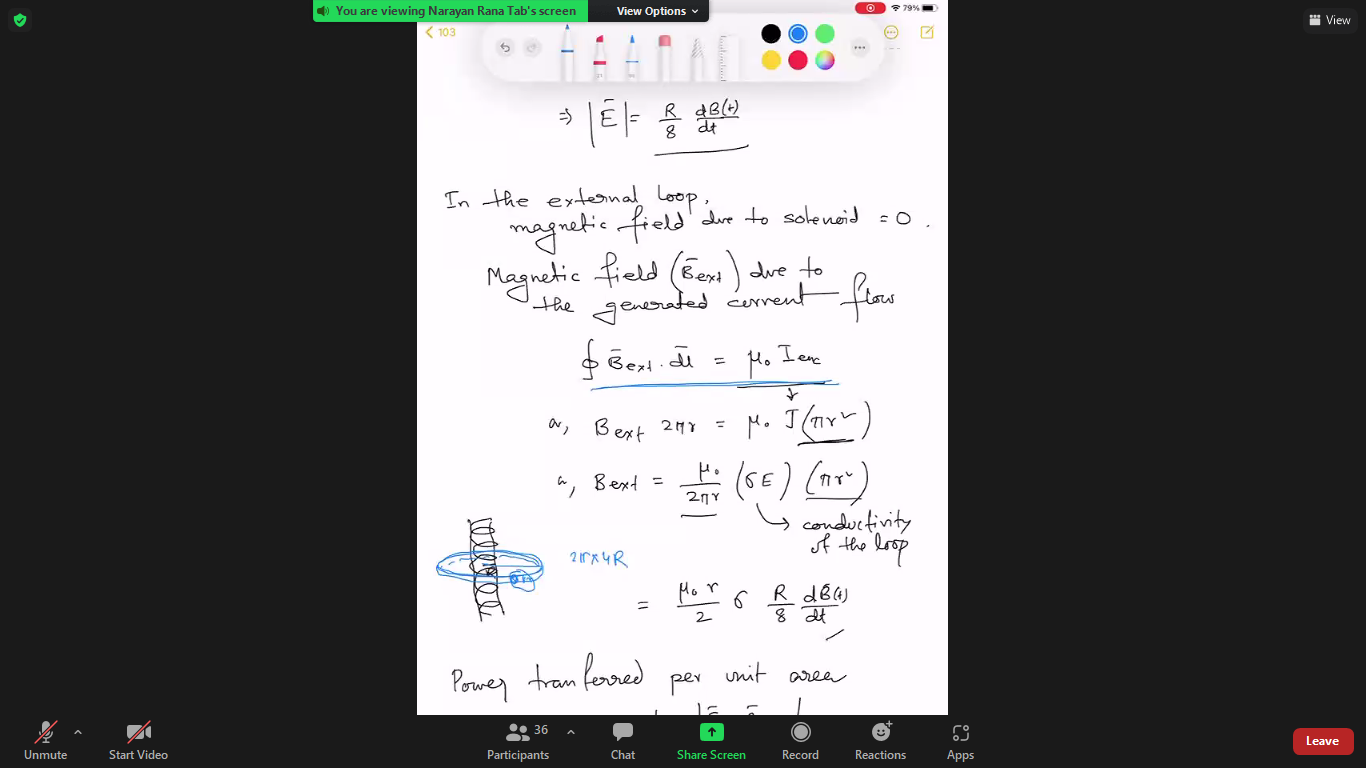 You are viewing Narayan Rana Tab's screen
View Options
79%
View
103
⇒ |E̅| = R/8 dB(t)/dt
In the external loop,
magnetic field due to solenoid = 0.
Magnetic field (B̅ext) due to
the generated current flow
∮ B̅ext . dl̅ = μ₀ Ienc
↓
a, Bext 2πr = μ₀ J (πr²)
a, Bext = μ₀/2πr (σE) (πr²)
→ conductivity
of the loop
2π×4R
= μ₀ r/2 σ R/8 dB(t)/dt
Power transferred per unit area
Unmute
Start Video
36
Participants
Chat
Share Screen
Record
Reactions
Apps
Leave